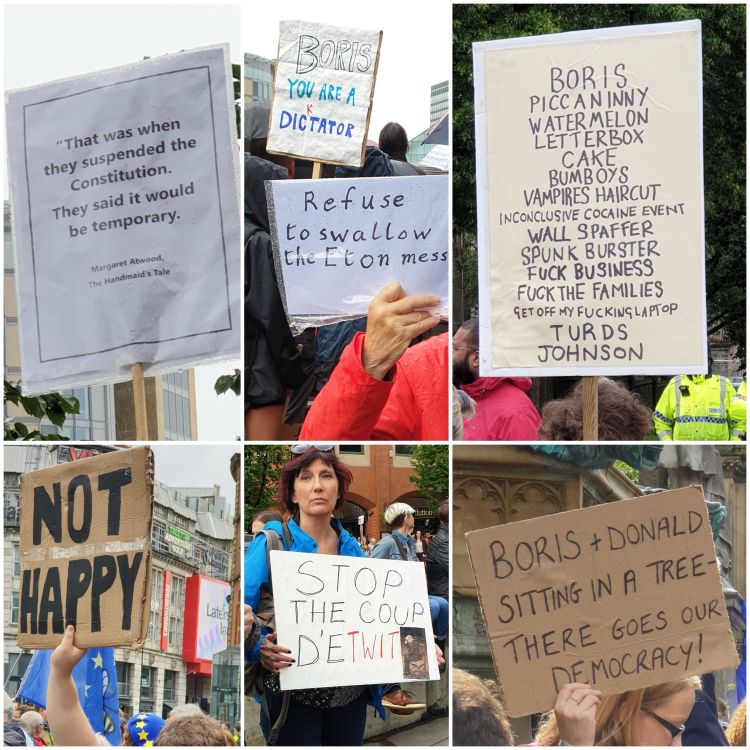 "That was when
they suspended the
Constitution.
They said it would
be temporary.
Margaret Atwood,
The Handmaid's Tale
BORIS
YOU ARE A
K
DICTATOR
Refuse
to swallow
the Eton mess
BORIS
PICCANINNY
WATERMELON
LETTERBOX
CAKE
BUMBOYS
VAMPIRES HAIRCUT
INCONCLUSIVE COCAINE EVENT
WALL SPAFFER
SPUNK BURSTER
FUCK BUSINESS
FUCK THE FAMILIES
GET OFF MY FUCKING LAPTOP
TURDS
JOHNSON
NOT
HAPPY
STOP
THE COUP
D'ETWIT
BORIS + DONALD
SITTING IN A TREE-
THERE GOES OUR
DEMOCRACY!